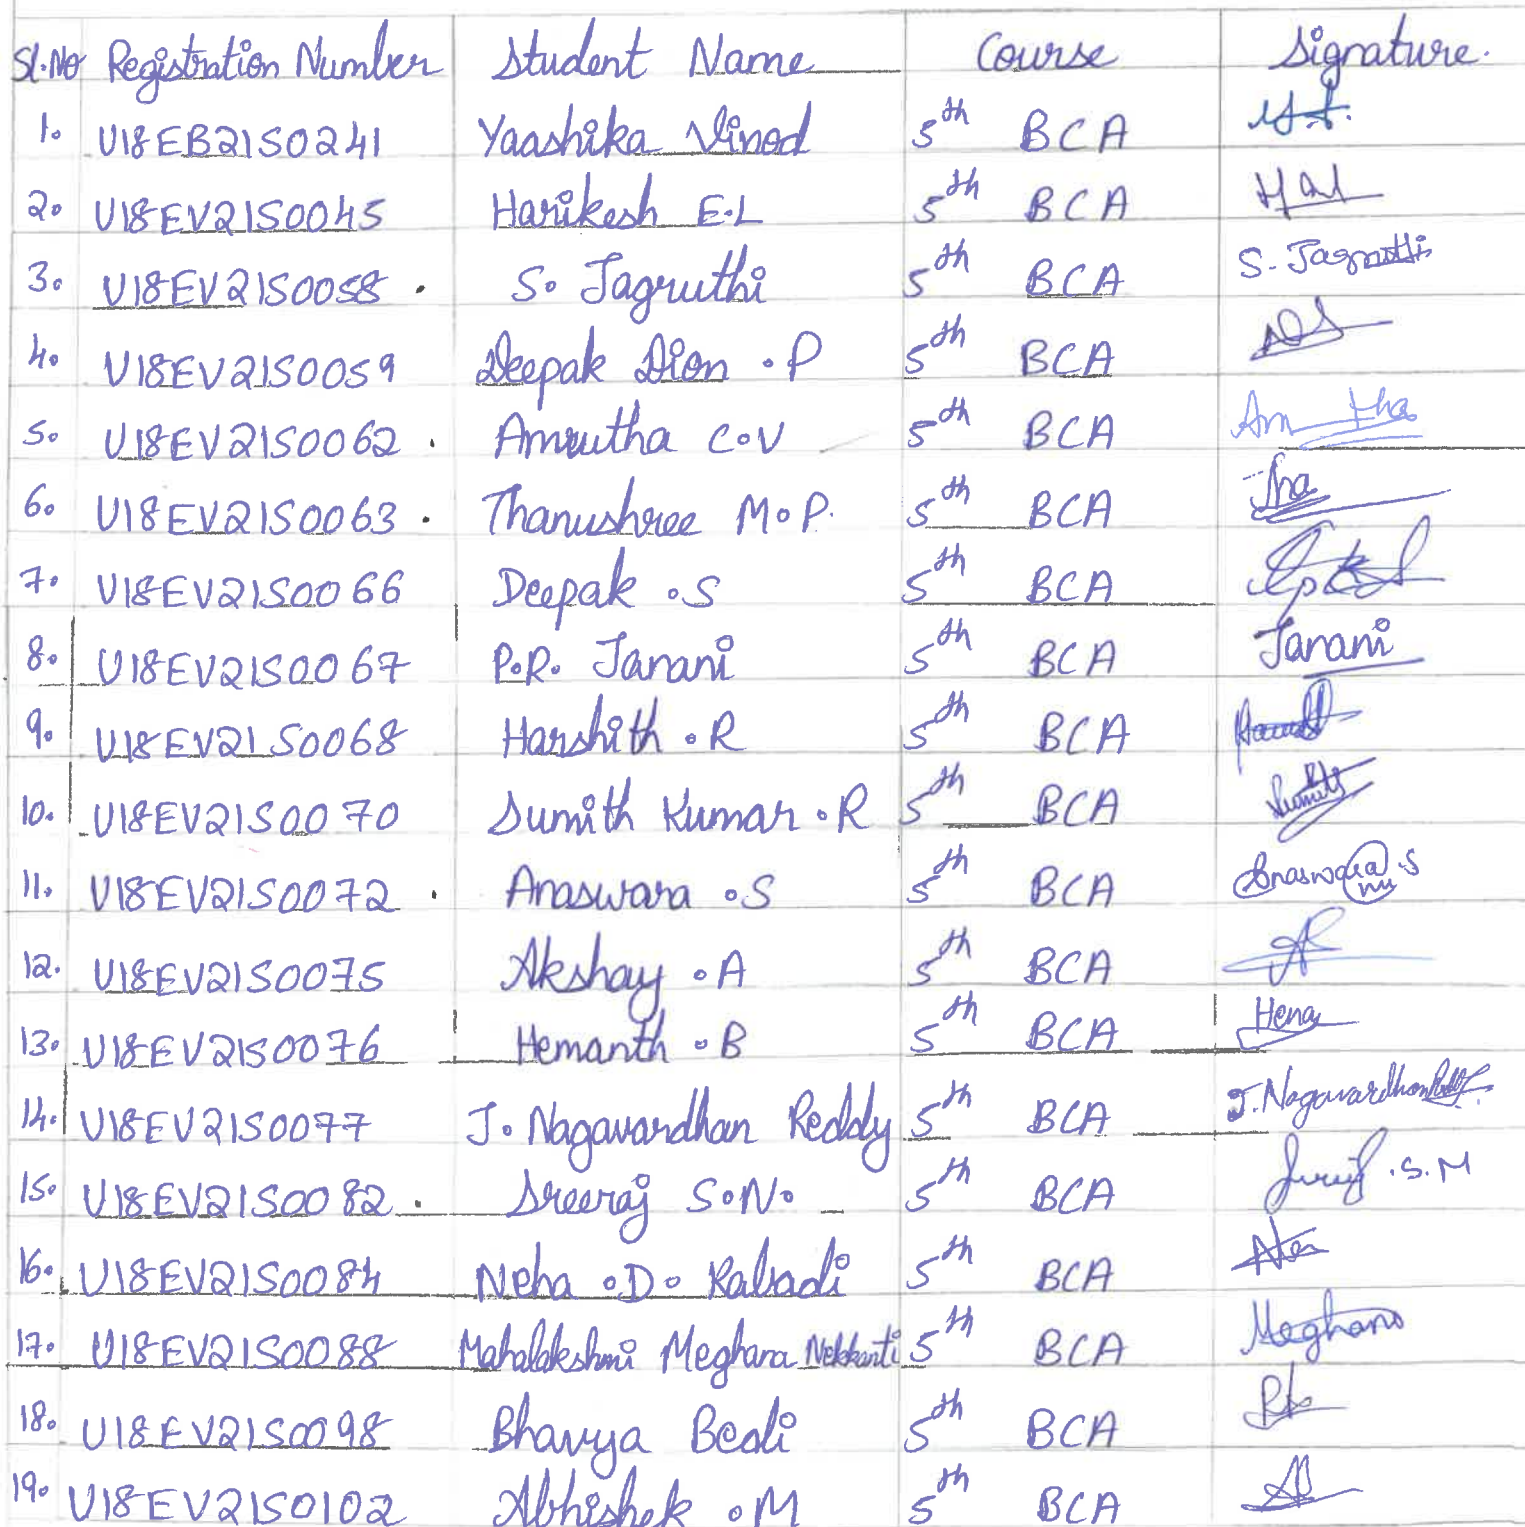 Sl.No Registration Number Student Name Course Signature.
1. U18EB21S0241 Yaashika Vinod 5th BCA
2. U18EV21S0045 Harikesh E.L 5th BCA
3. U18EV21S0058 . S. Jagruthi 5th BCA S. Jagruthi
4. U18EV21S0059 Deepak Dion . P 5th BCA
5. U18EV21S0062 . Amrutha C.V 5th BCA
6. U18EV21S0063 . Thanushree M.P. 5th BCA
7. U18EV21S0066 Deepak .S 5th BCA
8. U18EV21S0067 P.R. Janani 5th BCA Janani
9. U18EV21S0068 Harshith .R 5th BCA
10. U18EV21S0070 Sumith Kumar .R 5th BCA
11. U18EV21S0072 . Anaswara .S 5th BCA Anaswara .S
12. U18EV21S0075 Akshay .A 5th BCA
13. U18EV21S0076 Hemanth .B 5th BCA
14. U18EV21S0077 J. Nagavardhan Reddy 5th BCA J. Nagavardhan Reddy
15. U18EV21S0082 . Sreeraj S.N. 5th BCA .S.M
16. U18EV21S0084 Neha .D. Rabadi 5th BCA
17. U18EV21S0088 Mahalakshmi Meghana Nekkanti 5th BCA Meghana
18. U18EV21S0098 Bhavya Bedi 5th BCA
19. U18EV21S0102 Abhishek .M 5th BCA